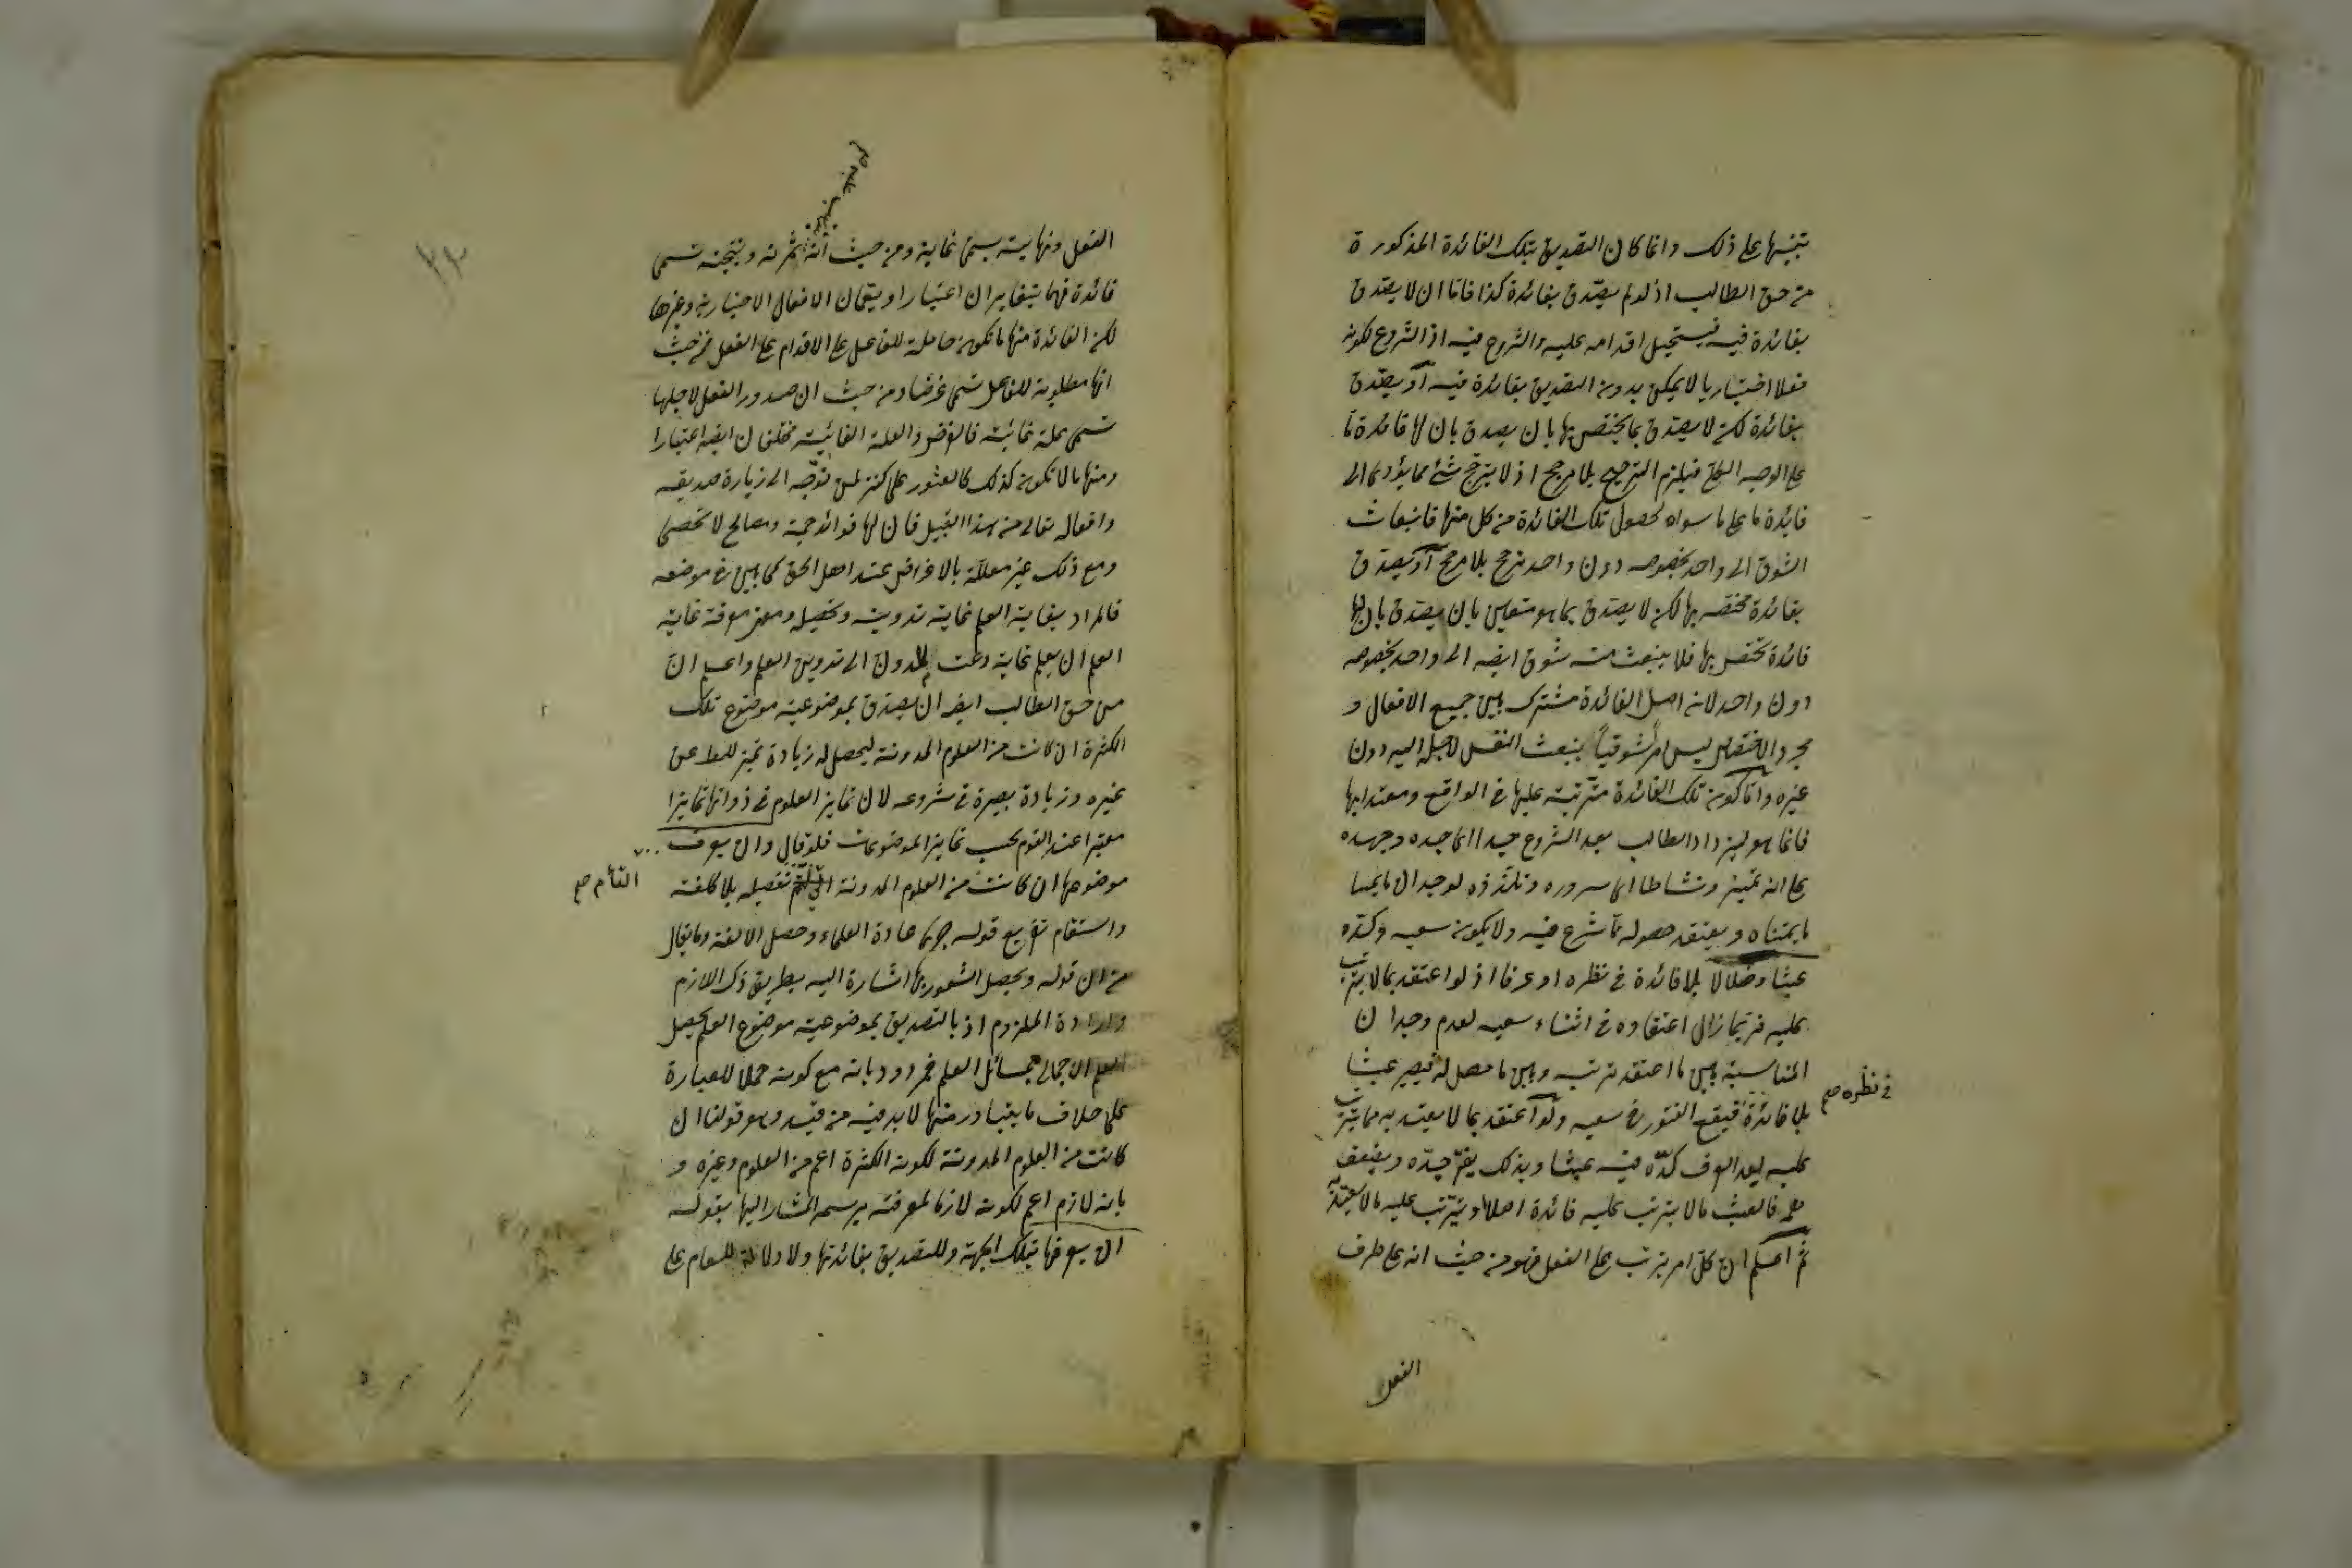 تنبيها على ذلك وانما كان التصديق بتلك الفائدة المذكورة
من حق الطالب اذ لو لم يصدق بفائدة كذا فاما ان لا يصدق
بفائدة فيه فيستحيل اقدامه عليه والشروع فيه اذ الشروع لكونه
فعلا اختياريا لا يمكن بدون التصديق بفائدة فيه او يصدق
بفائدة لكن لا يصدق بما يختص بها بان يصدق بان لها فائدة ما
على الوجه الكلي فيلزم الترجيح بلا مرجح اذ لا يترجح شئ مما يؤدي الى
فائدة ما على ما سواه لحصول تلك الفائدة من كل منها فانبعاث
الشوق الى واحد بخصوصه دون واحد ترجح بلا مرجح او يصدق
بفائدة مختصة بها لكن لا يصدق بما هو متعين بان يصدق بان لها
فائدة تختص بها فلا ينبعث منه شوق ايضه الى واحد بخصوصه
دون واحد لانه اصل الفائدة مشترك بين جميع الافعال و
مجرد الاختصاص ليس امرا شوقيا ينبعث النفس لاجله اليه دون
غيره واما كون تلك الفائدة مترتبة عليها في الواقع ومعتدا بها
فانما هو ليزداد الطالب بعد الشروع جيدا الى جده وجهده
على انه تميز ونشاطا الى سروره وتلذذه لوجدان ما يجبا
ما يتمناه ويعتقد حصوله مما شرع فيه ولا يكون سعيه وكده
عبثا وضلالا بلا فائدة في نظره او عرفا اذ لو اعتقد بما لا يترتب
عليه فربما زال اعتقاده في اثناء سعيه لعدم وجدان
المناسبة بين ما اعتقد ترتبه وبين ما حصل له فيصير عبثا
في نظره صح
بلا فائدة فيقع الفتور في سعيه ولو اعتقد بما لا يعتد به مما يترتب
عليه يعد العرف كده فيه عبثا وبذلك يفتر جده ويضعف
فالعبث ما لا يترتب عليه فائدة اصلا او يترتب عليه ما لا يعتد به
ثم اعلم ان كل امر يترتب على الفعل فهو من حيث انه على طرف
الفعل
الفعل ونهايته يسمى غاية ومن حيث انه ثمرته ونتيجته تسمى
فائدة فهما يتغايران اعتبارا ويعمان الافعال الاختيارية وغيرها
لكن الفائدة منها ما تكون حاملة للفاعل على الاقدام على الفعل فمن حيث
انها مطلوبة للفاعل تسمى غرضا ومن حيث ان صدور الفعل لاجلها
تسمى علة غائية فالغرض والعلة الغائية مختلفان ايضه اعتبارا
ومنها ما لا تكون كذلك كالعثور على كنز لمن توجه الى زيارة صديقه
وافعاله تعالى من هذا القبيل فان لها فوائد جمة ومصالح لا تحصى
ومع ذلك غير معللة بالاغراض عند اهل الحق كما بين في موضعه
فالمراد بغاية العلم غاية تدوينه وتحصيله ومعنى معرفة غاية
العلم ان يعلم غاية دعت المدون الى تدوين العلم واعلم ان
من حق الطالب ايضه ان يصدق بموضوعية موضوع تلك
الكثرة ان كانت من العلوم المدونة ليحصل له زيادة تميز للمط عن
غيره وزيادة بصيرة في شروعه لان تمايز العلوم في ذواتها تمايزا
معتبرا عند القوم بحسب تمايز الموضوعات فلو قال وان يعرف
موضوعها ان كانت من العلوم المدونة تفصيله بلا كلفة
التام صح
واستقام تفريع قوله جرى عادة العلماء وحصل الالفة وما يقال
من ان قوله ويحصل الشعور بها اشارة اليه بطريق ذكر اللازم
وارادة الملزوم اذ بالتصديق بموضوعية موضوع العلم يحصل
العلم الاجمالي بمسائل العلم فمردود بانه مع كونه حملا للعبارة
على خلاف ما يتبادر منها لا بد فيه من قيد وهو قولنا ان
كانت من العلوم المدونة لكون الكثرة اعم من العلوم وغيره و
بانه لازم اعم لكونه لازما لمعرفته برسمه المشار اليها بقوله
ان يعرفها بتلك الجهة وللتصديق بفائدتها ولا دلالة للعام على